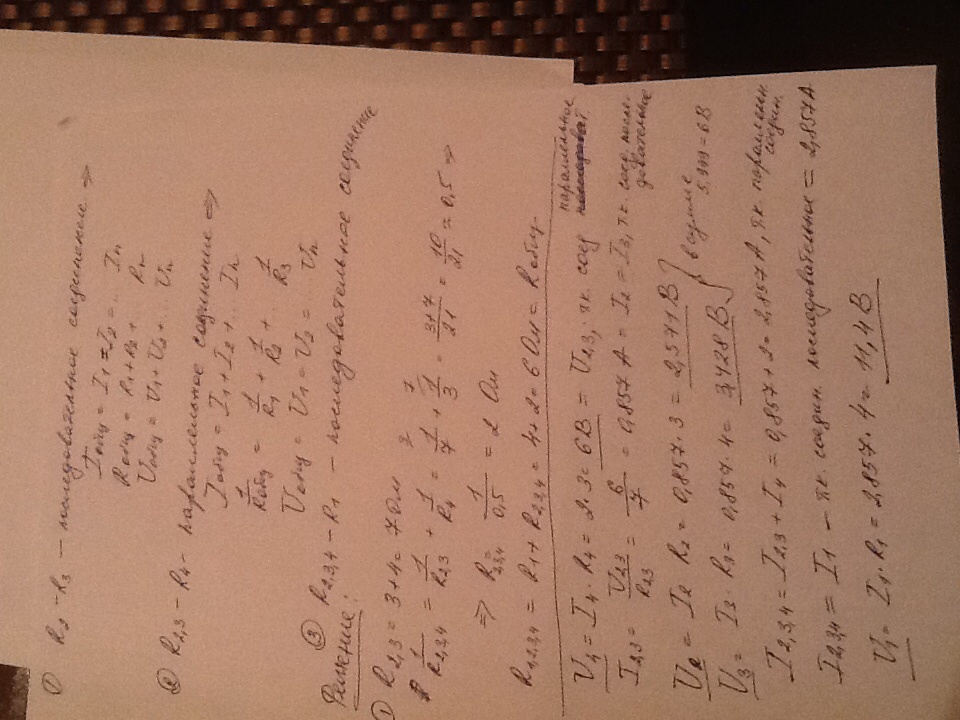 ① R2 – R3 – последовательное соединение ⇒
Iобщ = I1 = I2 = ... In
Rобщ = R1 + R2 + ... Rn
Uобщ = U1 + U2 + ... Un
② R2,3 – R4 – параллельное соединение ⇒
Iобщ = I1 + I2 + ... In
1/Rобщ = 1/R1 + 1/R2 + ... 1/R3
Uобщ = U1 = U2 = ... Un
③ R2,3,4 – R1 – последовательное соединение
Решение:
① R2,3 = 3 + 4 = 7 Ом
1/R2,3,4 = 1/R2,3 + 1/R4 = 1/7 + 1/3 = 3+7/21 = 10/21 = 0,5 ⇒
⇒ R2,3,4 = 1/0,5 = 2 Ом
R1,2,3,4 = R1 + R2,3,4 = 4 + 2 = 6 Ом = Rобщ.
U4 = I4 · R4 = 2 · 3 = 6 В = U2,3, т.к. соед параллельное
I2,3 = U2,3/R2,3 = 6/7 = 0,857 А = I2 = I3, т.к. соед. последовательное
U2 = I2 R2 = 0,857 · 3 = 2,571 В } в сумме 5,999 = 6 В
U3 = I3 · R3 = 0,857 · 4 = 3,428 В
I2,3,4 = I2,3 + I4 = 0,857 + 2 = 2,857 А, т.к. параллельн. соедин.
I2,3,4 = I1 – т.к. соедин. последовательное = 2,857 А
U1 = I1 · R1 = 2,857 · 4 = 11,4 В